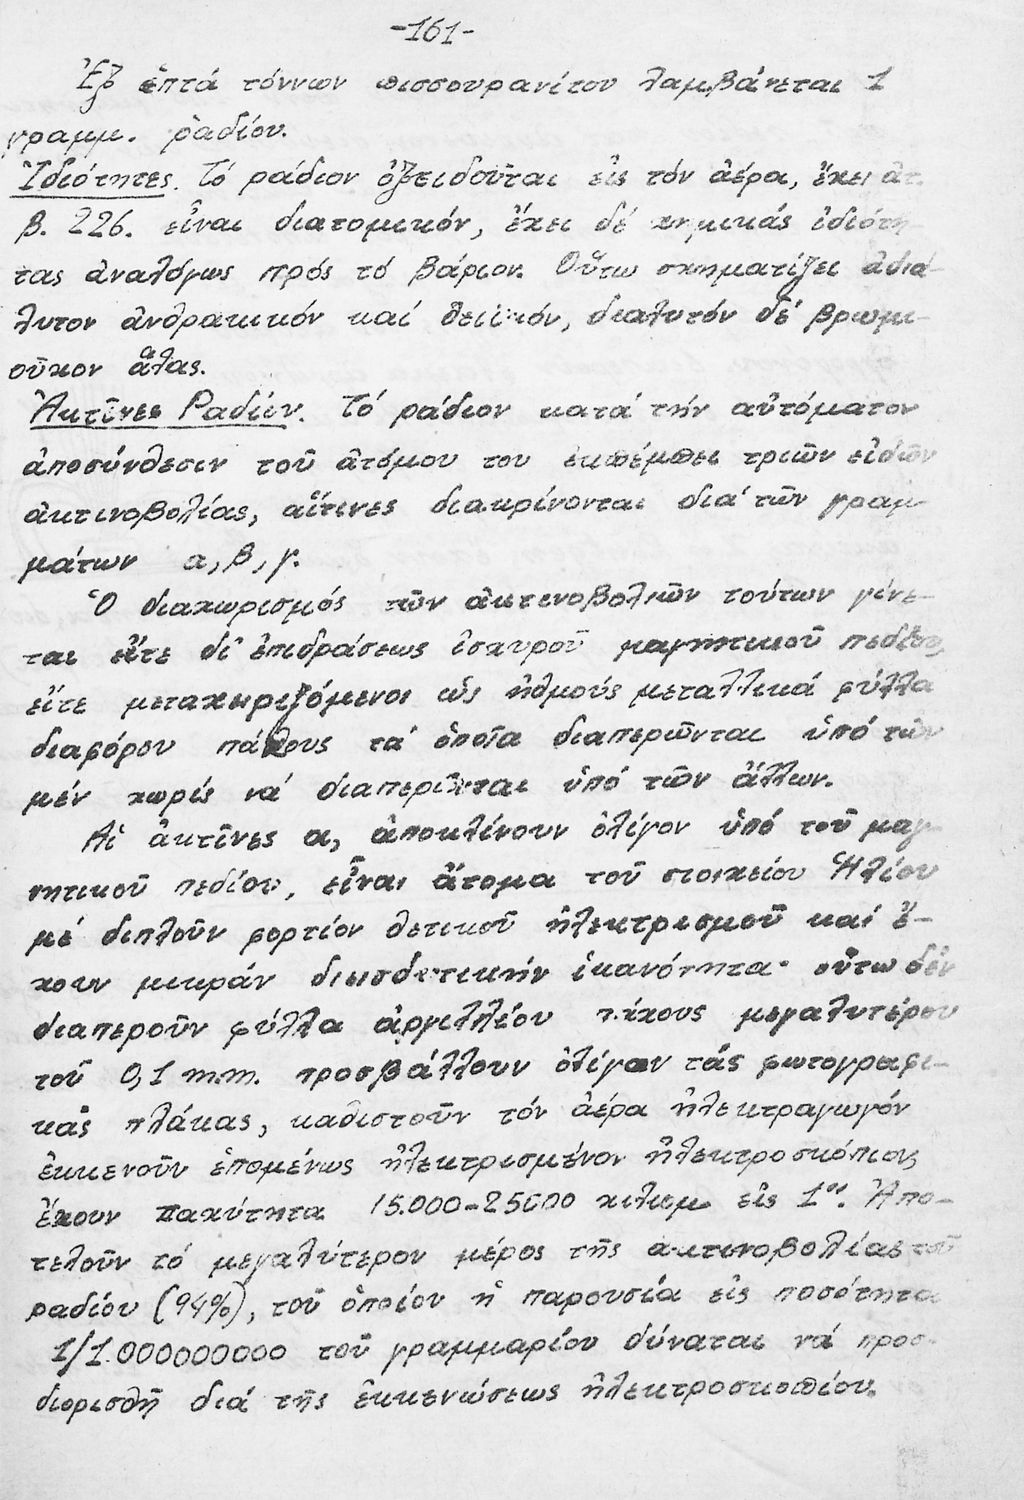 -161-
Ἐξ ἑπτά τόννων πισσουρανίτου λαμβάνεται 1
γραμμ. ραδίου.
Ἰδιότητες. Τό ράδιον ὀξειδοῦται εἰς τόν ἀέρα, ἔχει ἀτ.
β. 226. εἶναι διατομικόν, ἔχει δέ χημικάς ἰδιότη-
τας ἀναλόγως πρός τό βάριον. Οὕτω σχηματίζει ἀδιά-
λυτον ἀνθρακικόν καί θειϊκόν, διαλυτόν δέ βρωμι-
οῦχον ἅλας.
Ἀκτῖνες Ραδίου. Τό ράδιον κατά τήν αὐτόματον
ἀποσύνθεσιν τοῦ ἀτόμου του ἐκπέμπει τριῶν εἰδῶν
ἀκτινοβολίας, αἵτινες διακρίνονται διά τῶν γραμ-
μάτων α, β, γ.
Ὁ διαχωρισμός τῶν ἀκτινοβολιῶν τούτων γίνε-
ται εἴτε δι' ἐπιδράσεως ἰσχυροῦ μαγνητικοῦ πεδίου,
εἴτε μεταχειριζόμενοι ὡς ἠθμούς μεταλλικά φύλλα
διαφόρου πάχους τά ὁποῖα διαπερῶνται ὑπό τῶν
μέν χωρίς νά διαπερῶνται ὑπό τῶν ἄλλων.
Αἱ ἀκτῖνες α, ἀποκλίνουν ὀλίγον ὑπό τοῦ μαγ-
νητικοῦ πεδίου, εἶναι ἄτομα τοῦ στοιχείου Ἡλίου
μέ διπλοῦν φορτίον θετικοῦ ἠλεκτρισμοῦ καί ἔ-
χουν μικράν διεισδυτικήν ἱκανότητα· οὕτω δέν
διαπεροῦν φύλλα ἀργιλλίου πάχους μεγαλυτέρου
τοῦ 0,1 m.m. προσβάλλουν ὀλίγον τάς φωτογραφι-
κάς πλάκας, καθιστοῦν τόν ἀέρα ἠλεκτραγωγόν
ἐκκενοῦν ἑπομένως ἠλεκτρισμένον ἠλεκτροσκόπιον,
ἔχουν ταχύτητα 15.000-25000 χιλιομ εἰς 1''. Ἀπο-
τελοῦν τό μεγαλύτερον μέρος τῆς ἀκτινοβολίας τοῦ
ραδίου (94%), τοῦ ὁποίου ἡ παρουσία εἰς ποσότητα
1/1.000000000 τοῦ γραμμαρίου δύναται νά προσ-
διορισθῆ διά τῆς ἐκκενώσεως ἠλεκτροσκοπίου.